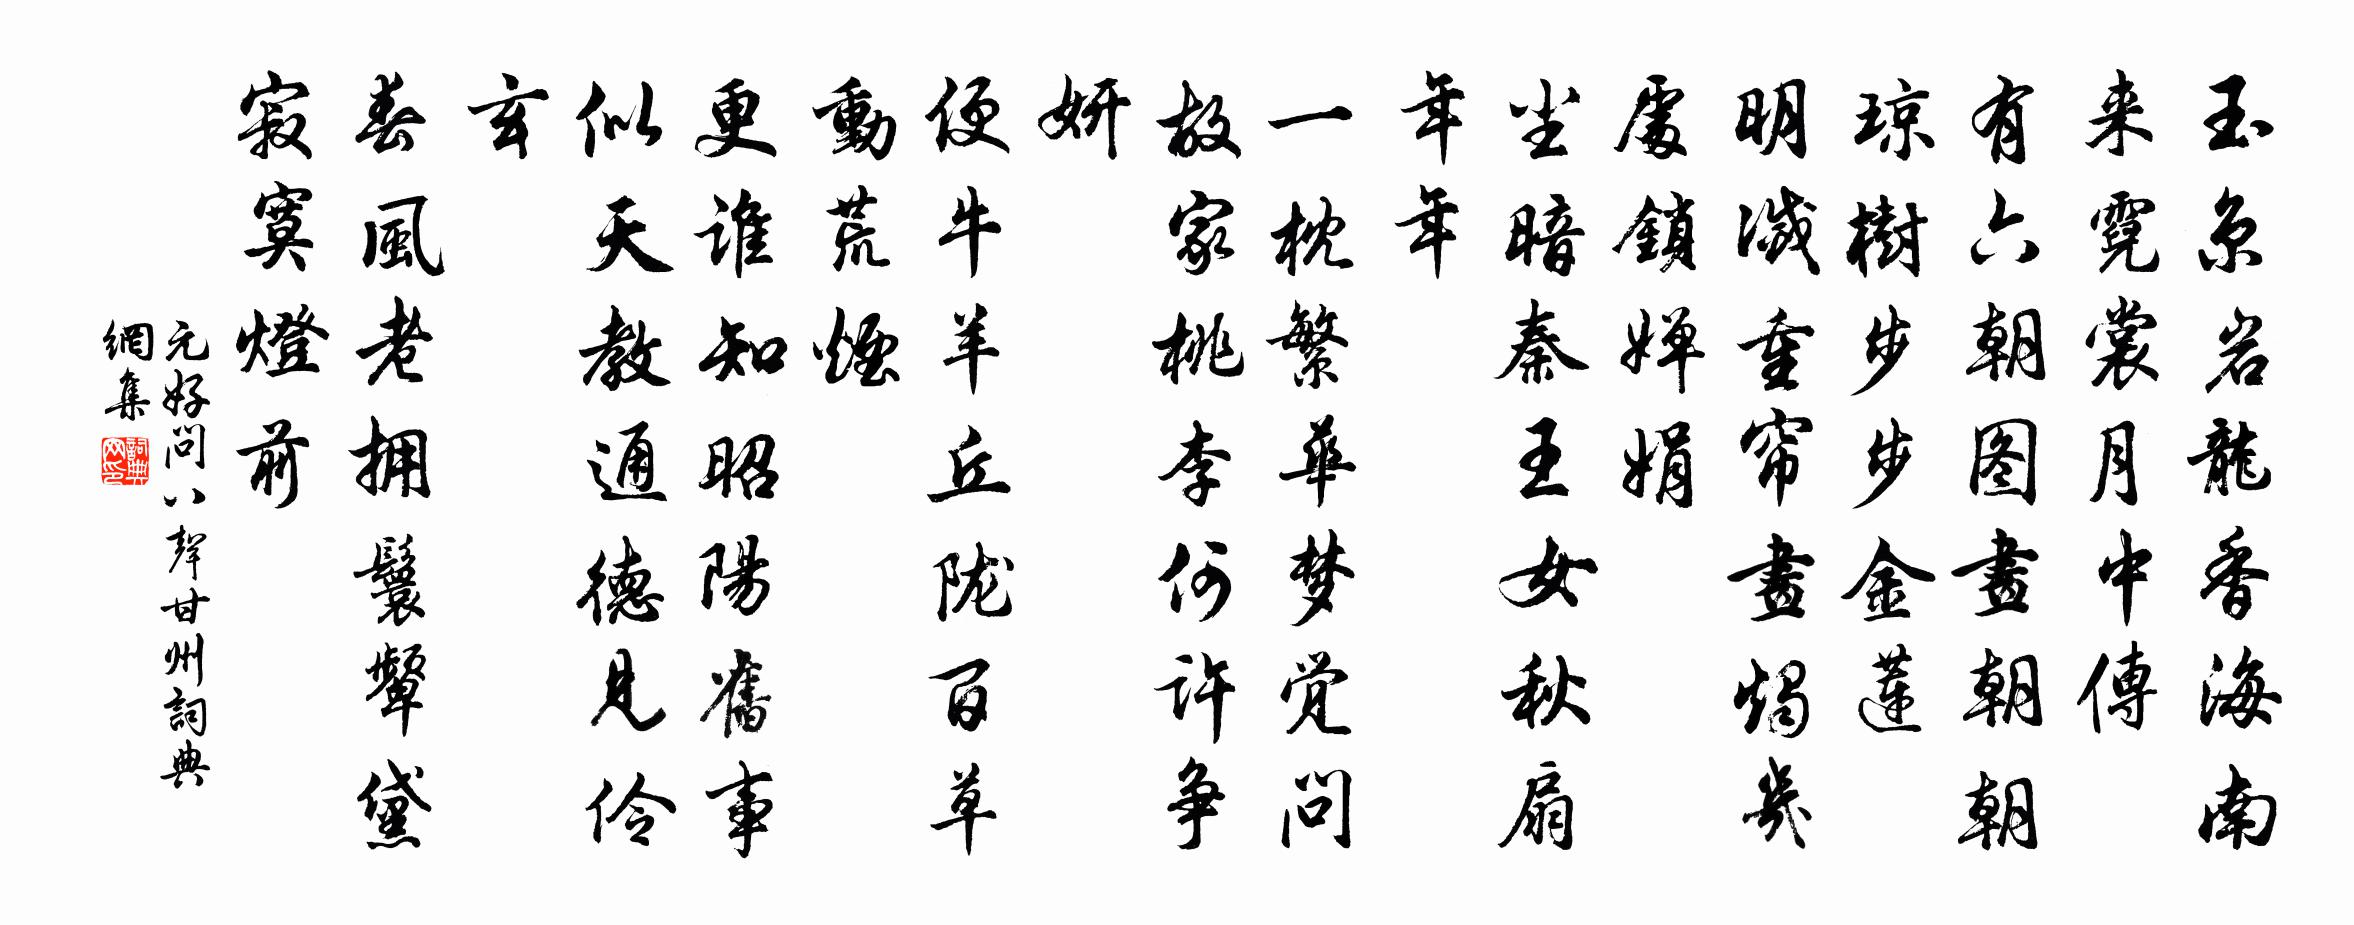 玉京岩龍香海南
来霓裳月中傳
有六朝图畫朝朝
琼樹步步金蓮
明滅重帘畫燭幾
處鎖婵娟
尘暗秦王女秋扇
年年
一枕繁華梦觉问
故家桃李何许争
妍
便牛羊丘陇百草
動荒煙
更谁知昭陽舊事
似天教通德見伶
玄
春風老拥鬟颦黛
寂寞燈前
元好问八聲甘州詞典
網集
詞典网印